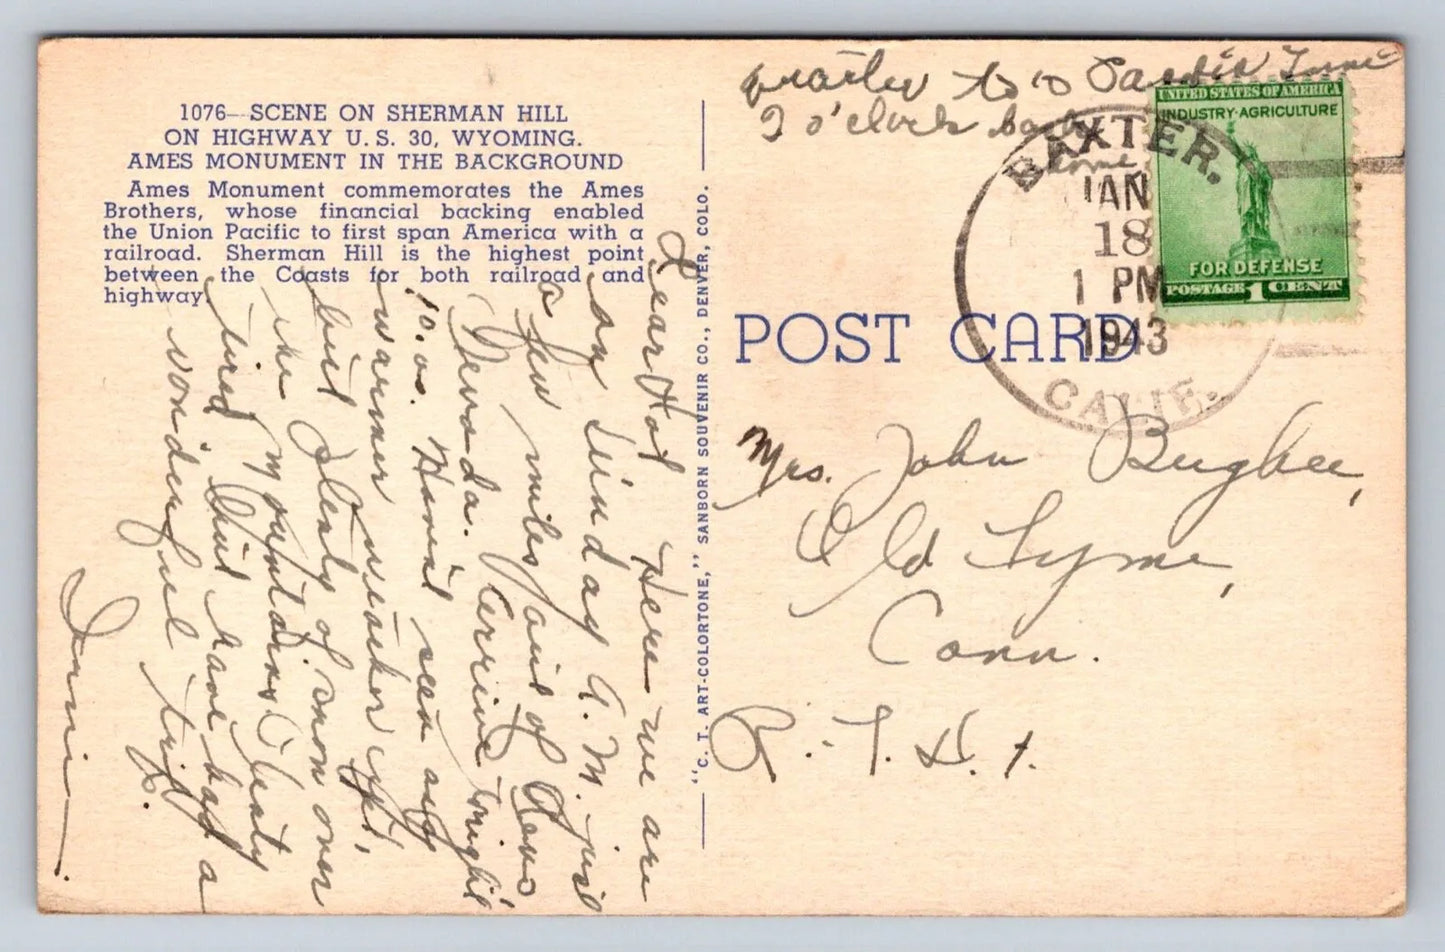 1076—SCENE ON SHERMAN HILL
ON HIGHWAY U. S. 30, WYOMING.
AMES MONUMENT IN THE BACKGROUND
Ames Monument commemorates the Ames
Brothers, whose financial backing enabled
the Union Pacific to first span America with a
railroad. Sherman Hill is the highest point
between the Coasts for both railroad and
highway.
Dear Dot Here we are
on Sunday A.M. just
a few miles out of Reno
Nevada. Arrive Tonight
10.00. Haven't seen any
warmer weather yet,
but plenty of snow over
the mountains. Pretty
tired but have had a
wonderful trip.
"C. T. ART-COLORTONE," SANBORN SOUVENIR CO., DENVER, COLO.
to Pacific Time
7 o'clock back
home.
BAXTER.
JAN
18
1 PM
1943
CALIF.
UNITED STATES OF AMERICA
INDUSTRY-AGRICULTURE
FOR DEFENSE
POSTAGE 1 CENT
POST CARD
Mrs. John Bugbee,
Old Lyme,
Conn.
R.F.D.1.